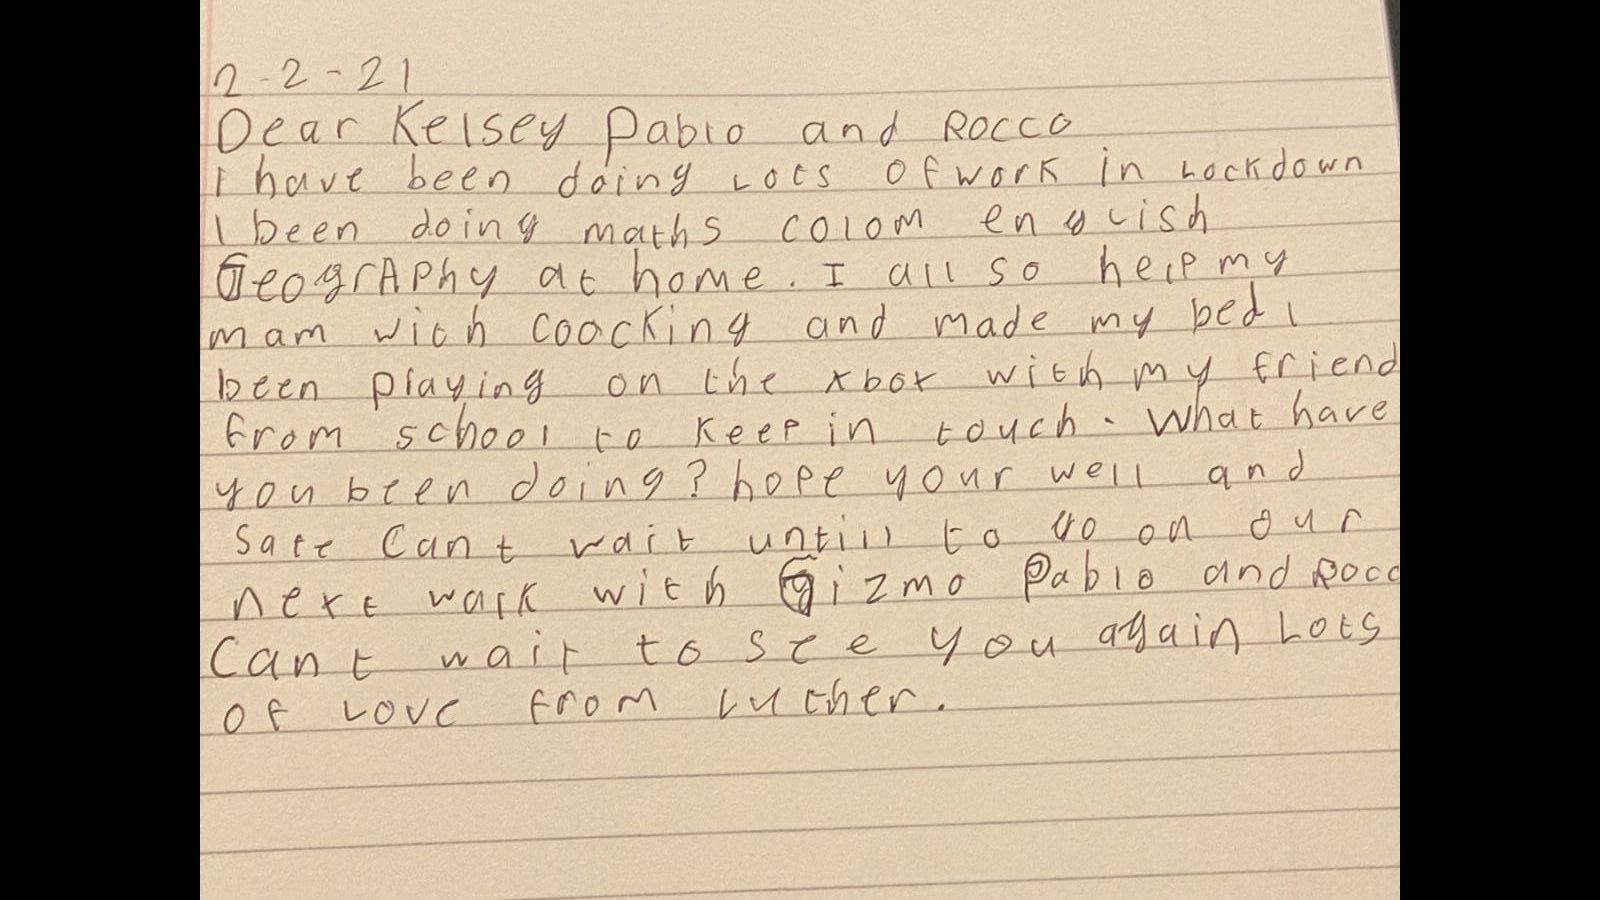 2-2-21
Dear Kelsey Pablo and Rocco
I have been doing Lots of work in Lockdown
I been doing maths colom english
GeogrAPhy at home. I all so help my
mam with coocking and made my bed I
been playing on the xbox with my friend
from school to keep in touch. What have
you been doing? hope your well and
safe Cant wait untill to go on our
next walk with Gizmo Pablo and Rocc
Cant wait to see you again Lots
of Love from Luther.